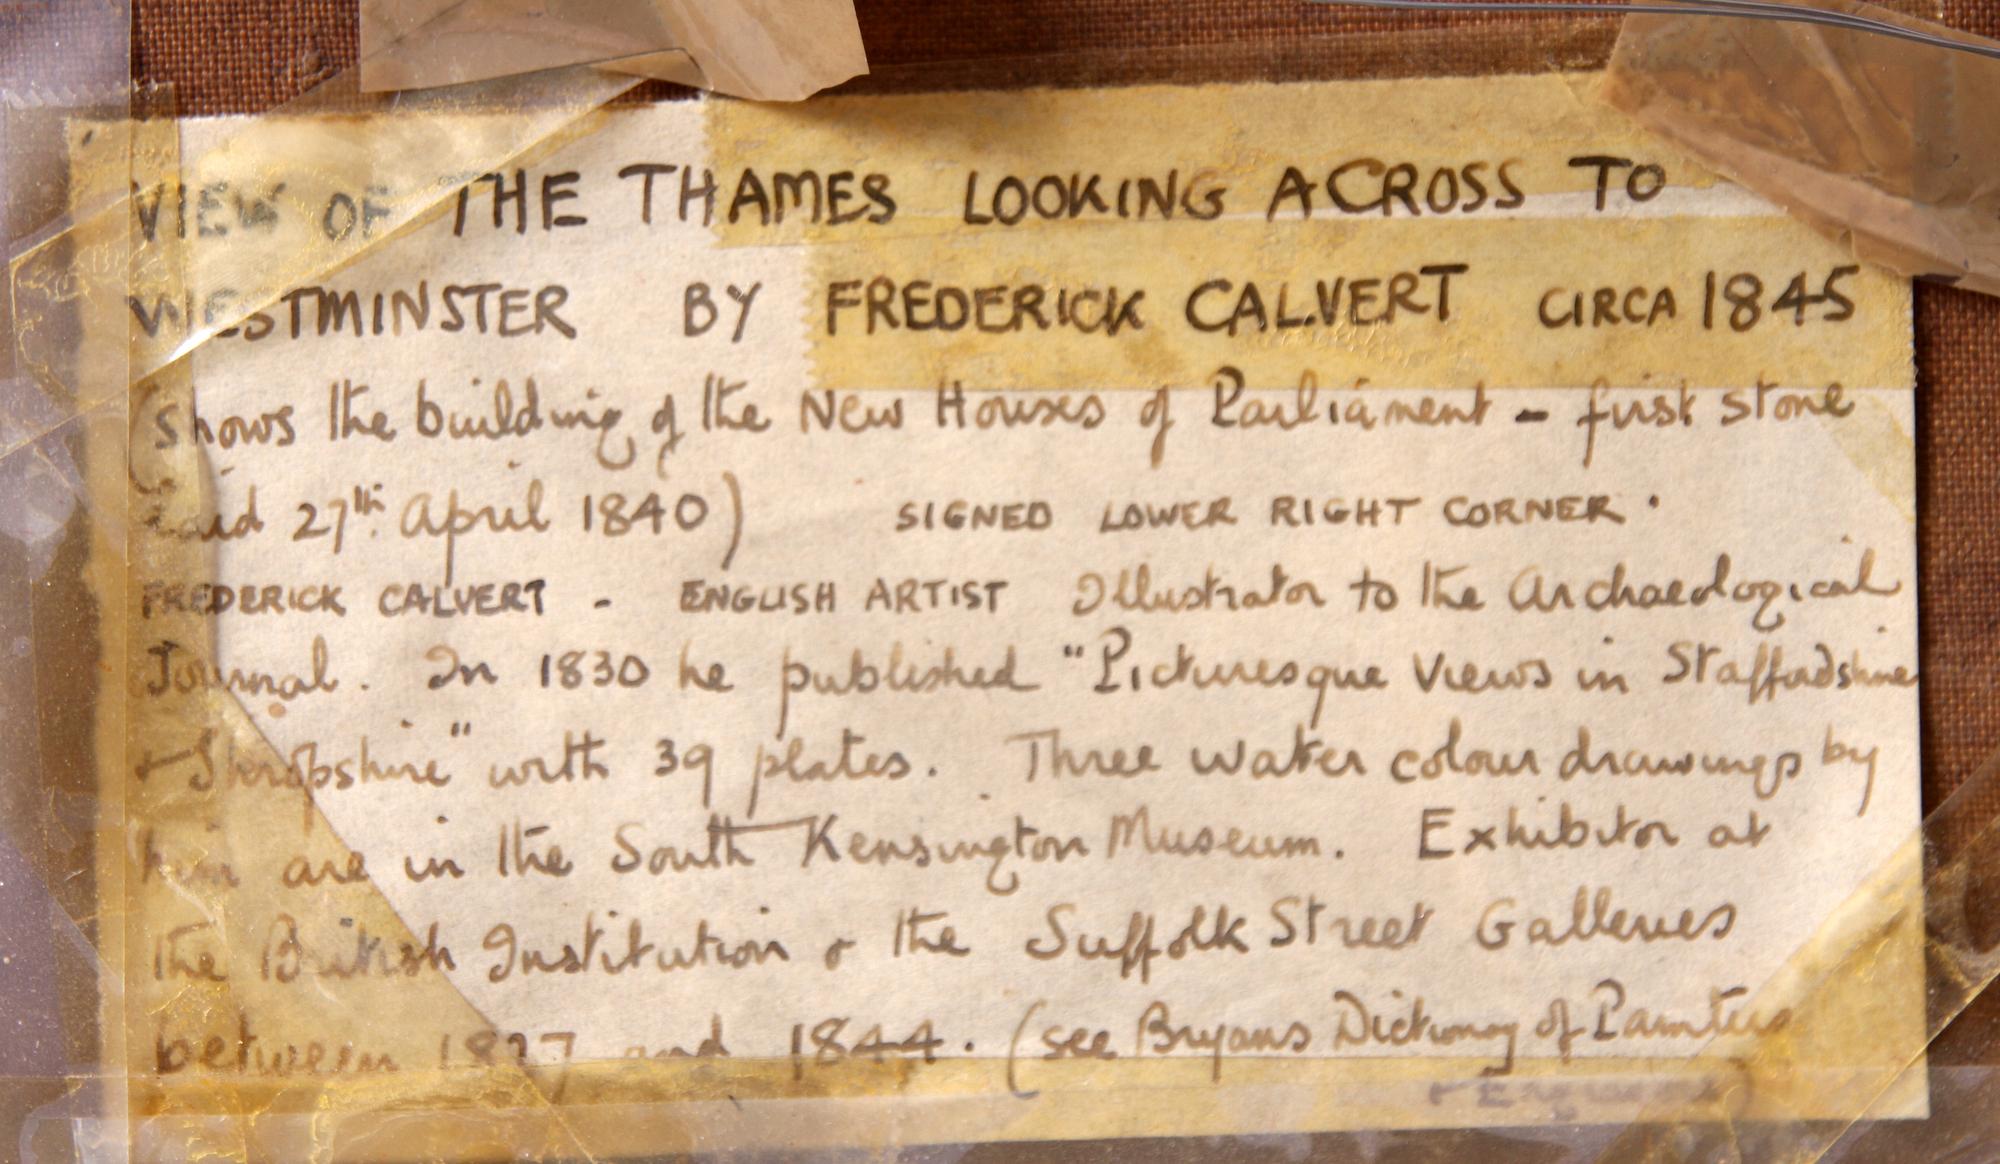 VIEW OF THE THAMES LOOKING ACROSS TO
WESTMINSTER BY FREDERICK CALVERT CIRCA 1845
(shows the building of the New Houses of Parliament - first stone
laid 27th April 1840) SIGNED LOWER RIGHT CORNER.
FREDERICK CALVERT - ENGLISH ARTIST Illustrator to the Archaeological
Journal. In 1830 he published "Picturesque Views in Staffordshire
& Shropshire" with 39 plates. Three water colour drawings by
him are in the South Kensington Museum. Exhibitor at
the British Institution & the Suffolk Street Galleries
between 1827 and 1844. (see Bryans Dictionary of Painters
& Engravers)